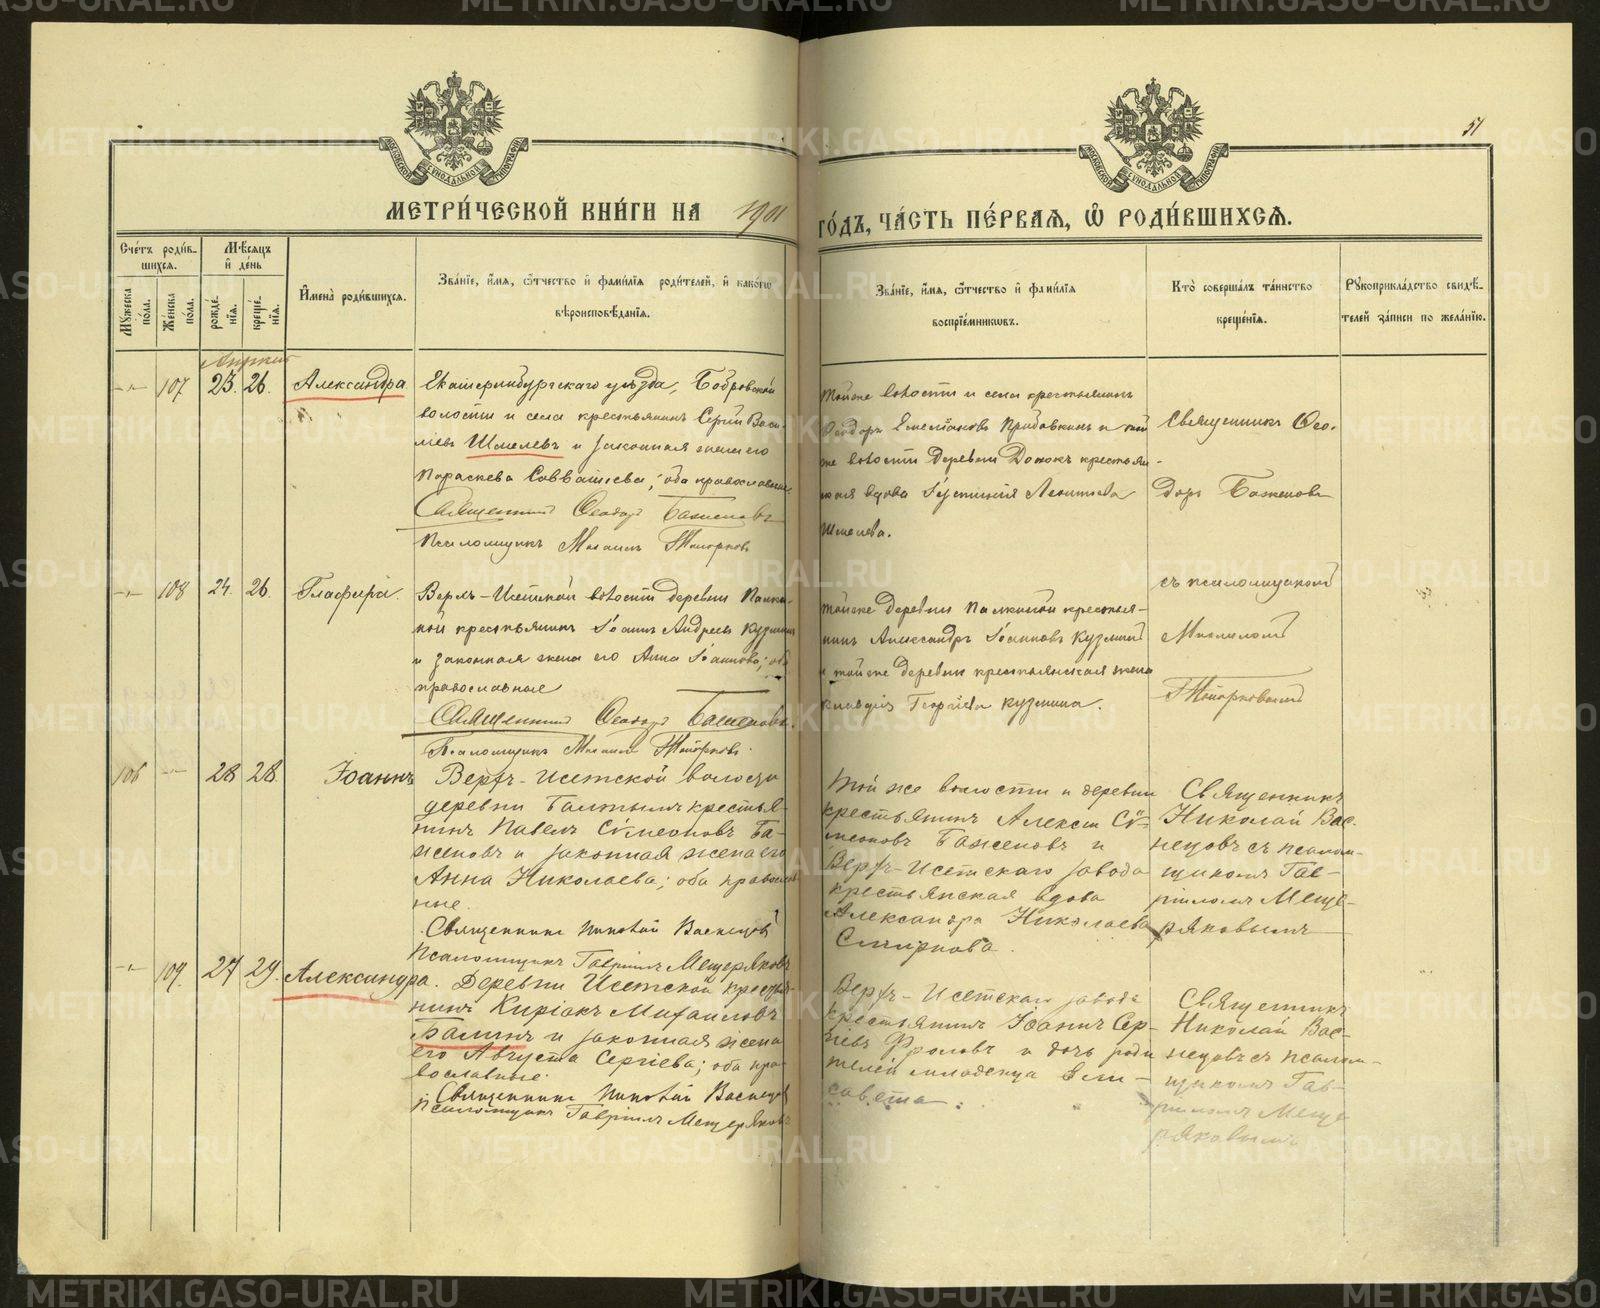 51
МОСКОВСКОЙ СѴНОДАЛЬНОЙ ТИПОГРАФІИ
МОСКОВСКОЙ СѴНОДАЛЬНОЙ ТИПОГРАФІИ
МЕТРИ́ЧЕСКОЙ КНИ́ГИ НА 1901 ГО́ДЪ, ЧА́СТЬ ПЕ́РВАЯ, Ѽ РОДИ́ВШИХСЯ.
Сче́тъ роди́в-
шихся.
Мꙋ́жеска по́ла.
Же́нска по́ла.
Мѣ́сяцъ и҆ де́нь
рожде́нїя.
креще́нїя.
И҆мена̀ роди́вшихся.
Зва́нїе, и҆́мя, ѻ҆́тчество и҆ фами́лїя роди́телей, и҆ како́гѡ
вѣроисповѣ́данїя.
Зва́нїе, и҆́мя, ѻ҆́тчество и҆ фами́лїя
воспрїе́мникѡвъ.
Кто̀ соверша́лъ та́инство
креще́нїя.
Рꙋкоприкла́дство свидѣ́-
телей за́писи по жела́нїю.
Апрѣль
107 23. 26. Александра
Екатеринбургскаго уѣзда, Бобровской
волости и села крестьянинъ Сергій Васи-
ліевъ Шмелевъ и законная жена его
Параскева Савватіева; оба православные.
Священникъ Ѳеодоръ Баженовъ
Псаломщикъ Михаилъ Топорковъ
тойже волости и села крестьянинъ
Ѳеодоръ Емеліановъ и той
же волости деревни крестьян-
ская вдова Леонтіева
Шмелева.
Священникъ Ѳео-
доръ Баженовъ
съ псаломщикомъ
Михаиломъ
Топорковымъ
108 24. 26. Глафира.
Верхъ-Исетской волости деревни Палки-
ной крестьянинъ Іоаннъ Андреевъ Кузминъ
и законная жена его Анна Іоаннова; оба
православные
Священникъ Ѳеодоръ Баженовъ.
Псаломщикъ Михаилъ Топорковъ.
тойже деревни Палкиной крестья-
нинъ Александръ Іоанновъ Кузминъ
и тойже деревни крестьянская жена
Клавдія Георгіева Кузмина.
106 28 28 Іоаннъ
Верхъ-Исетской волости
деревни Балтымъ крестья-
нинъ Павелъ Сѵмеоновъ Ба-
женовъ и законная жена его
Анна Николаева; оба православ-
ные.
Священникъ Николай Васнецовъ
Псаломщикъ Гавріилъ Мещеряковъ
Той же волости и деревни
крестьянинъ Алексій Сѵ-
меоновъ Баженовъ и
Верхъ-Исетскаго завода
крестьянская вдова
Александра Николаева
Смирнова.
Священникъ
Николай Вас-
нецовъ съ псалом-
щикомъ Гав-
ріиломъ Меще-
ряковымъ
109. 27 29. Александра.
Деревни Исетской крестья-
нинъ Киріакъ Михаиловъ
Балинъ и законная жена
его Августа Сергіева; оба пра-
вославные.
Священникъ Николай Васнецовъ
Псаломщикъ Гавріилъ Мещеряковъ
Верхъ-Исетскаго завода
крестьянинъ Іоаннъ Сер-
гіевъ Фроловъ и дочь роди
телей младенца Ели-
савета.
Священникъ
Николай Вас-
нецовъ съ псалом-
щикомъ Гав-
ріиломъ Меще
ряковымъ
METRIKI.GASO-URAL.RU